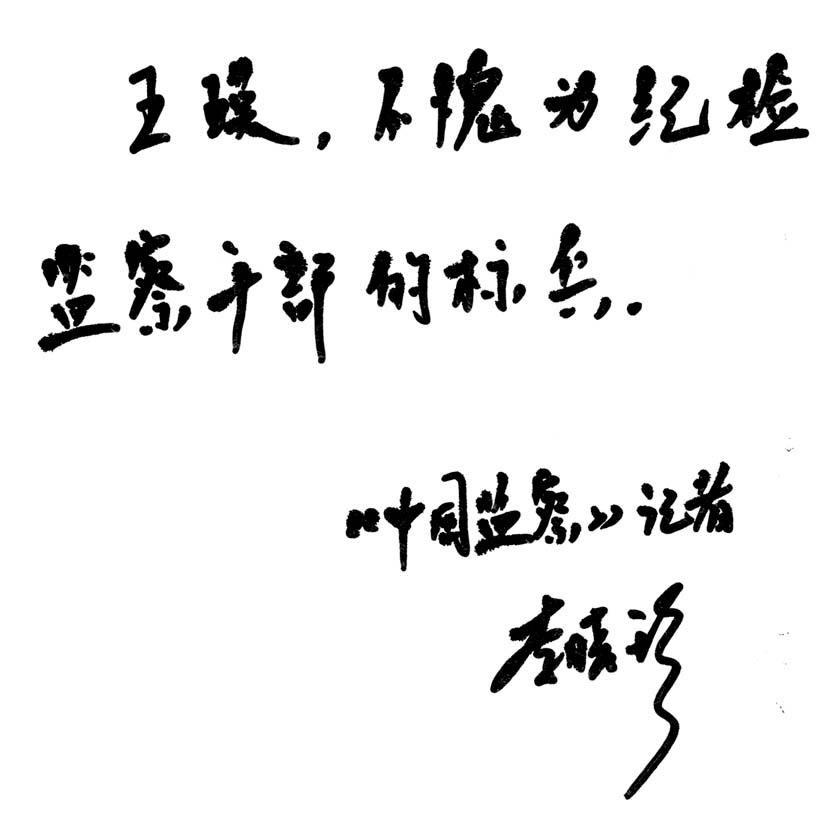 王瑛，不愧为纪检
监察干部的标兵.
《中国监察》记者
李晓珍